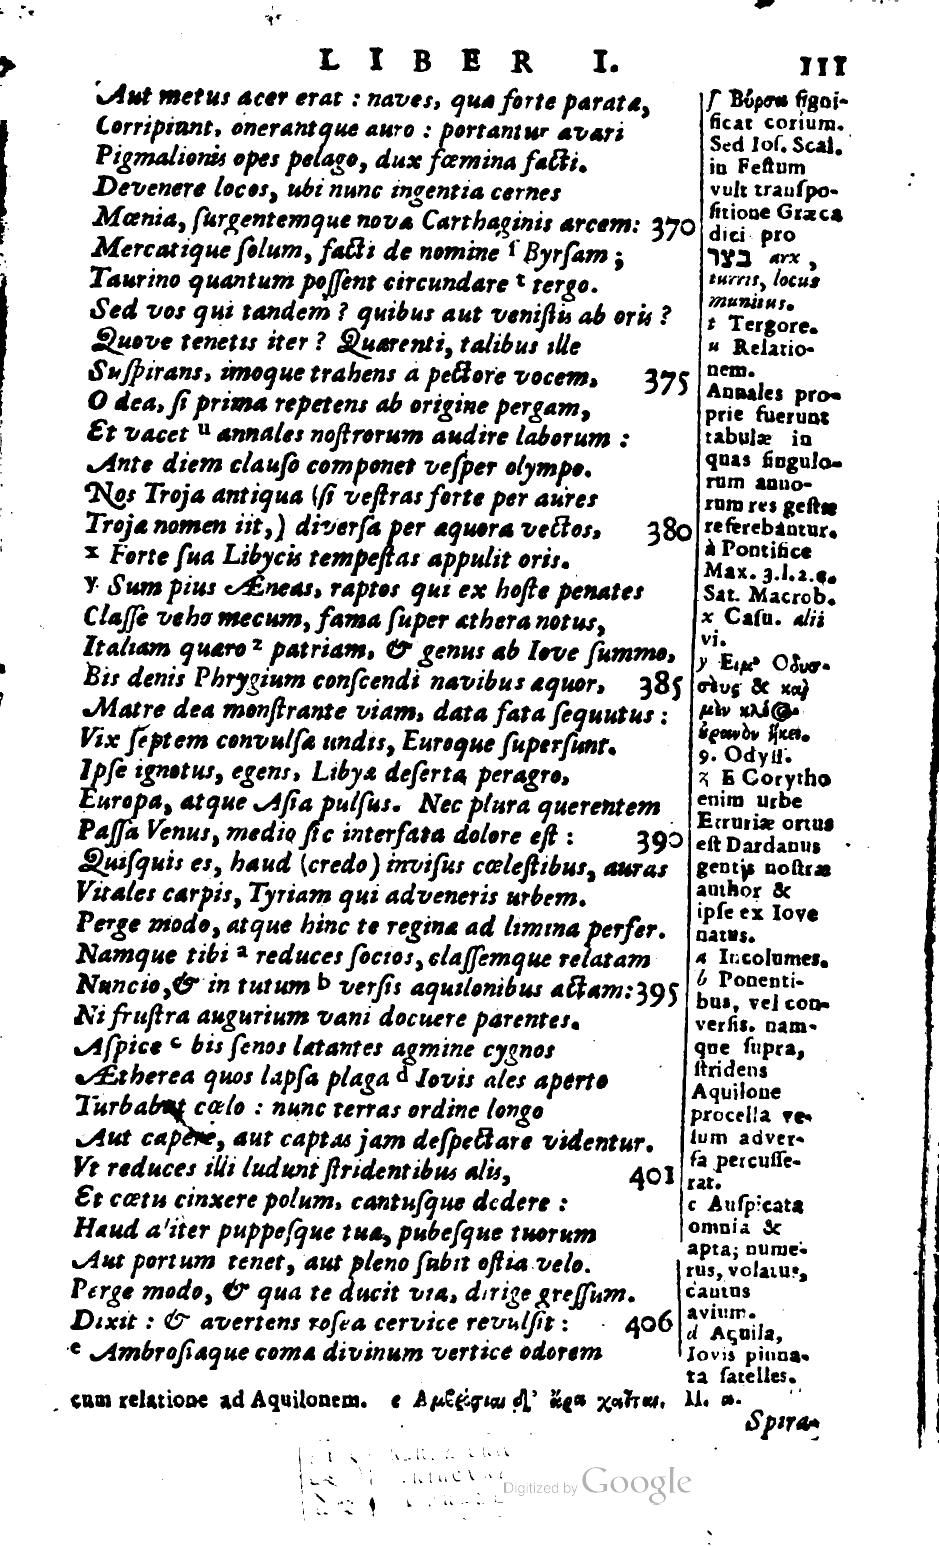 LIBER I. 111
Aut metus acer erat : naves, quæ forte paratæ,
Corripiunt, onerantque auro : portantur avari
Pigmalionis opes pelago, dux fœmina facti.
Devenere locos, ubi nunc ingentia cernes
Mœnia, ſurgentemque novæ Carthaginis arcem: 370
Mercatique ſolum, facti de nomine ſ Byrſam ;
Taurino quantum poſſent circundare t tergo.
Sed vos qui tandem ? quibus aut veniſtis ab oris ?
Quove tenetis iter ? Quærenti, talibus ille
Suſpirans, imoque trahens à pectore vocem, 375
O dea, ſi prima repetens ab origine pergam,
Et vacet u annales noſtrorum audire laborum :
Ante diem clauſo componet veſper olympo.
Nos Troja antiqua (ſi veſtras forte per aures
Trojæ nomen iit,) diverſa per æquora vectos, 380
x Forte ſua Libycis tempeſtas appulit oris.
y Sum pius Æneas, raptos qui ex hoſte penates
Claſſe veho mecum, fama ſuper æthera notus,
Italiam quæro z patriam, & genus ab Iove ſummo,
Bis denis Phrygium conſcendi navibus æquor, 385
Matre dea monſtrante viam, data fata ſequutus :
Vix ſeptem convulſæ undis, Euroque ſuperſunt.
Ipſe ignotus, egens, Libyæ deſerta peragro,
Europa, atque Aſia pulſus. Nec plura querentem
Paſſa Venus, medio ſic interfata dolore eſt : 390
Quiſquis es, haud (credo) inviſus cœleſtibus, auras
Vitales carpis, Tyriam qui adveneris urbem.
Perge modo, atque hinc te reginæ ad limina perfer.
Namque tibi a reduces ſocios, claſſemque relatam
Nuncio, & in tutum b verſis aquilonibus actam: 395
Ni fruſtra augurium vani docuere parentes.
Aſpice c bis ſenos lætantes agmine cygnos
Ætherea quos lapſa plaga d Iovis ales aperto
Turbabat cœlo : nunc terras ordine longo
Aut capere, aut captas jam deſpectare videntur.
Vt reduces illi ludunt ſtridentibus alis, 401
Et cœtu cinxere polum, cantuſque dedere :
Haud aliter puppeſque tuæ, pubeſque tuorum
Aut portum tenet, aut pleno ſubit oſtia velo.
Perge modo, & qua te ducit via, dirige greſſum.
Dixit : & avertens roſea cervice refulſit : 406
e Ambroſiæque comæ divinum vertice odorem
ſ Βύρσα ſigni-
ficat corium.
Sed Ioſ. Scal.
in Feſtum
vult tranſpo-
ſitione Græca
dici pro
בצר arx ,
turris, locus
munitus.
t Tergore.
u Relatio-
nem.
Annales pro-
prie fuerunt
tabulæ in
quas ſingulo-
rum anno-
rum res geſtæ
referebantur.
à Pontifice
Max. 3.l.2.c.
Sat. Macrob.
x Caſu. alii
vi.
y Ειμ' Οδυσ-
σεὺς & καί
μὲυ κλέος
ὀρανὸν ἥκει.
9. Odyſſ.
z E Corytho
enim urbe
Etruriæ ortus
eſt Dardanus
gentis noſtræ
author &
ipſe ex Iove
natus.
a Incolumes.
b Ponenti-
bus, vel con-
verſis. nam-
que ſupra,
ſtridens
Aquilone
procella ve-
lum adver-
ſa percuſſe-
rat.
c Auſpicata
omnia &
apta; nume-
rus, volatus,
cantus
avium.
d Aquila,
Iovis pinna-
ta ſatelles.
cum relatione ad Aquilonem. e Αμβρόσιαι δ' ἄρα χαῖται. Il. α.
Spira-
Digitized by Google